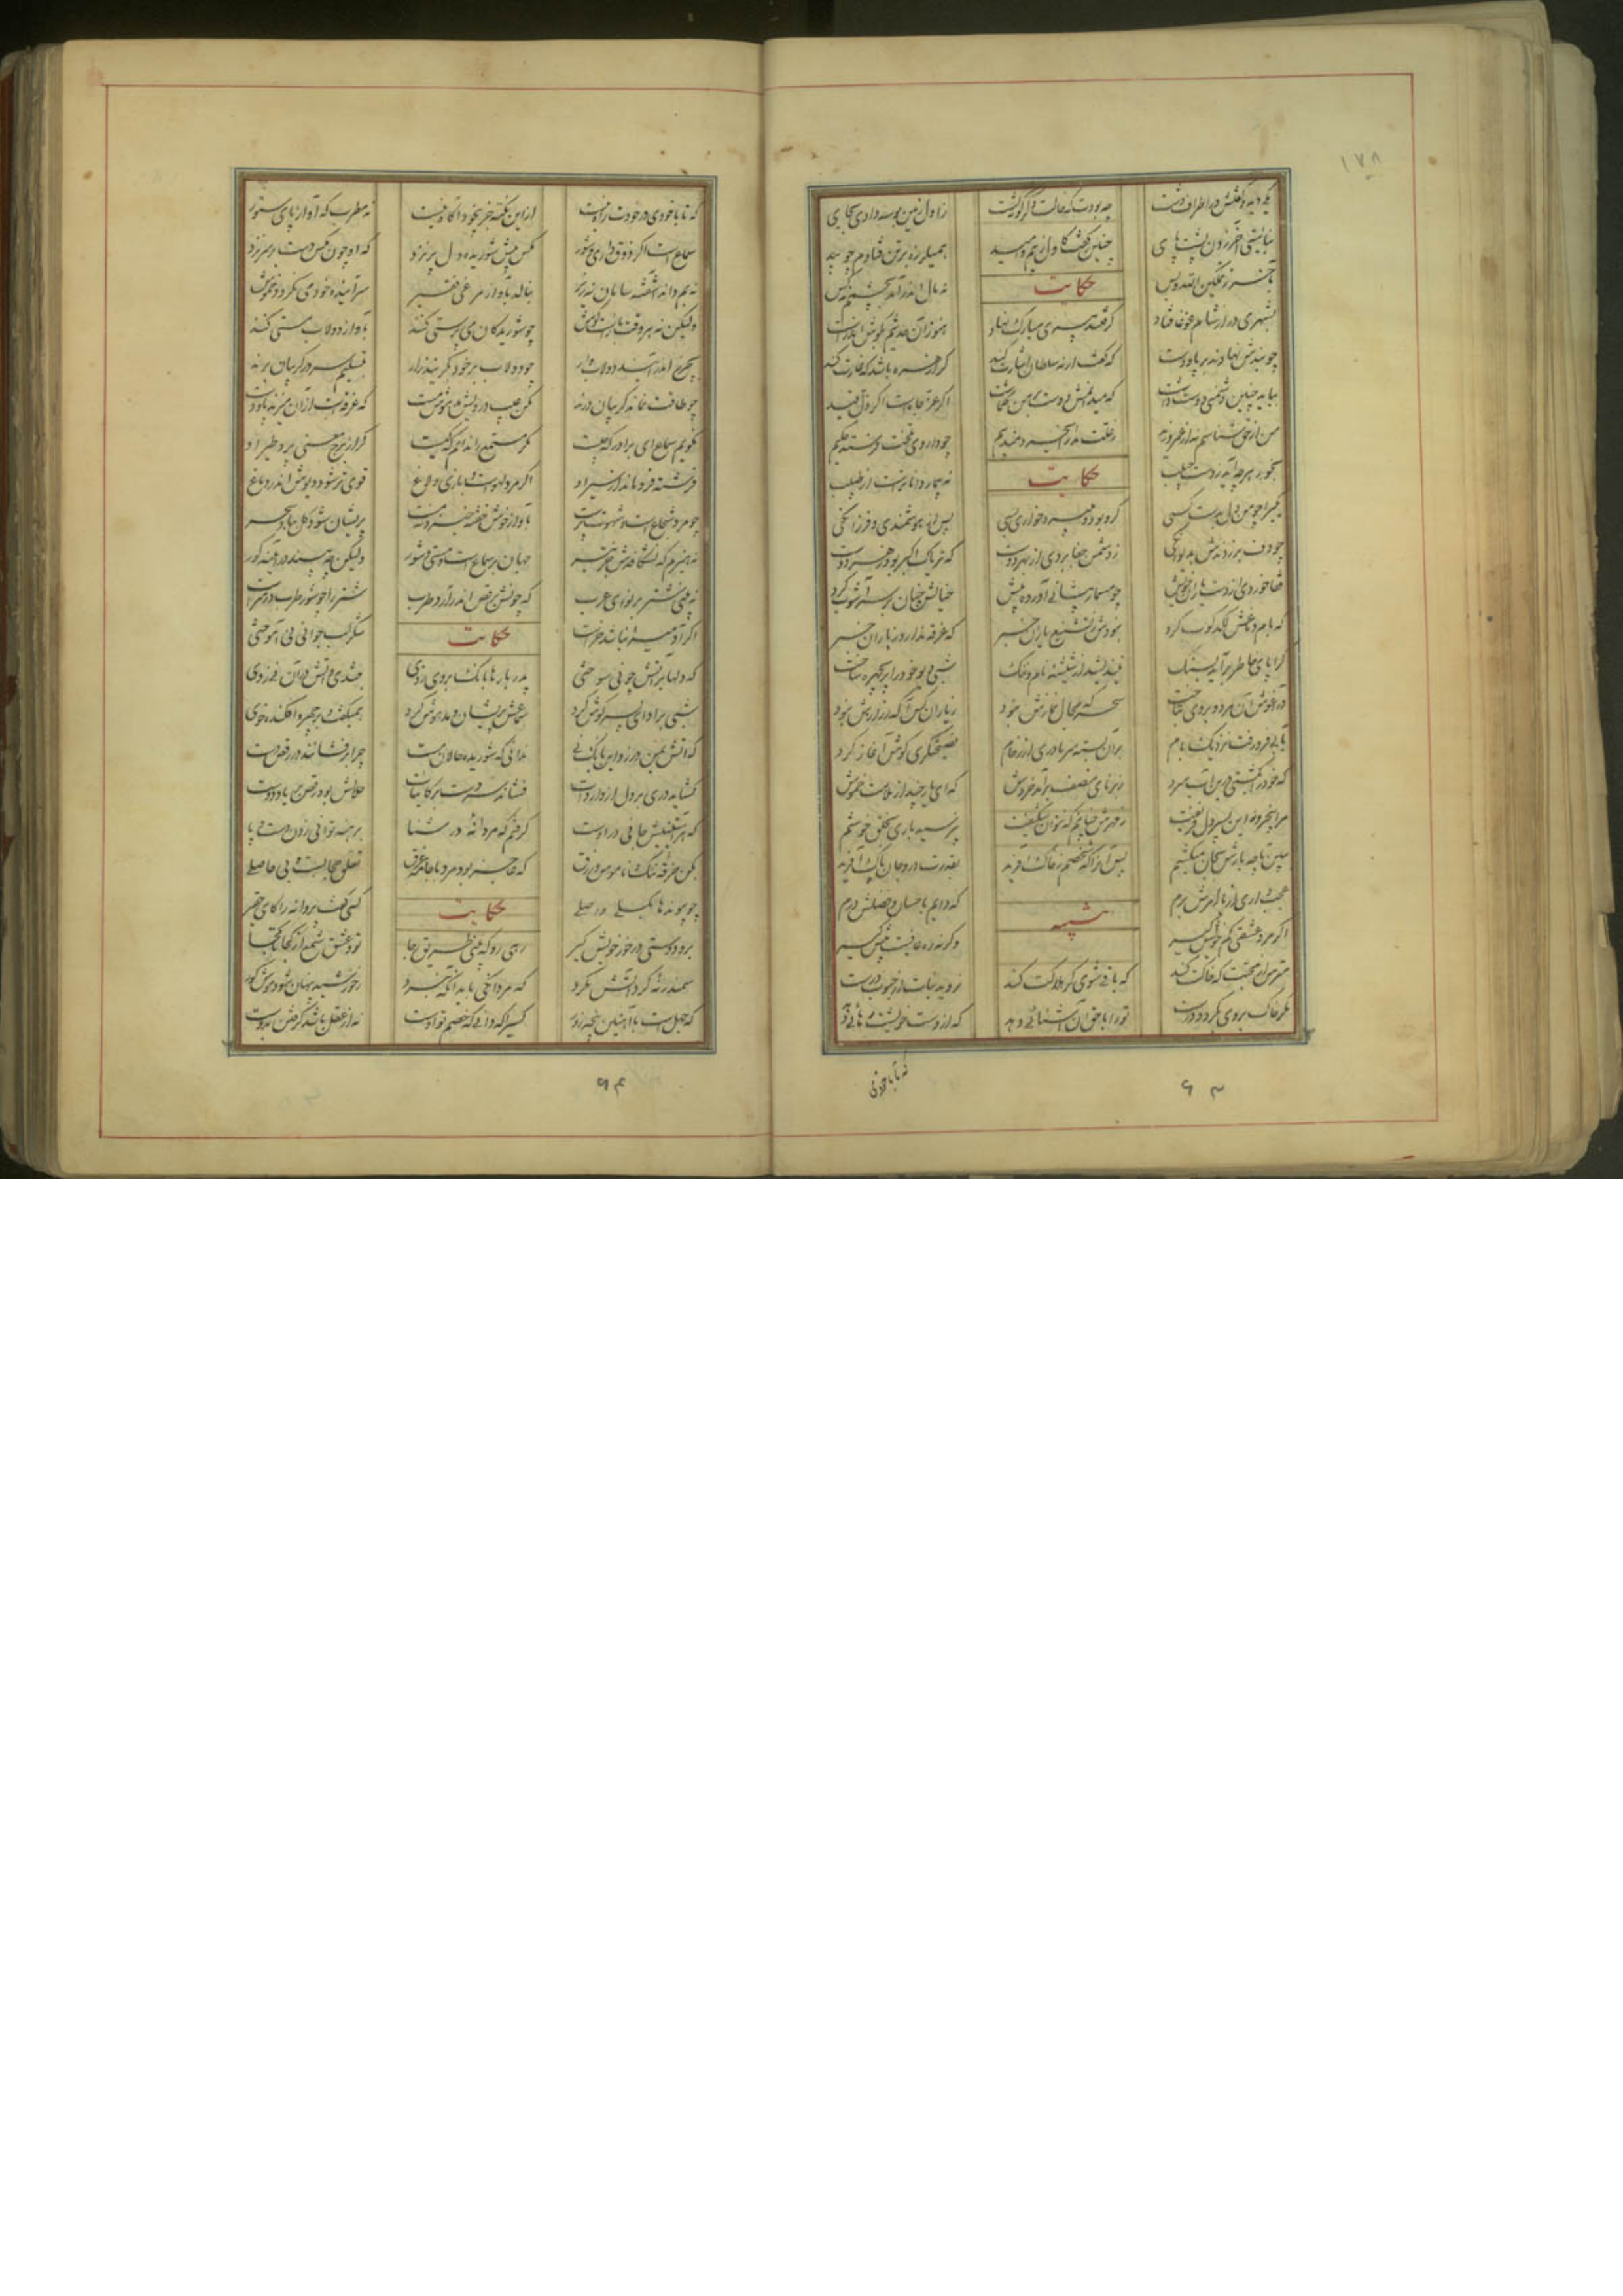 ۱۷۸
یکی دید و گفتش در اطراف دشت چه بودت که حالت دگرگونه گشت ز اول زمین بوسه دادی بجای
نبایستی آخر زدن پشت پای چنین گفت کاول ز بیم و امید همیلرزه بر تن فتادم چو بید
بآخر ز تمکین الله و بس حکایت نه مال اندر آمد بچشمم نه کس
بشهری در از شام غوغا فتاد گرفتند پیری مبارک نهاد هنوز آن حدیثم بگوش اندرست
چو بندش نهادند بر پا و دست که گفت ار نه سلطان اشارت کند کرا زهره باشد که غارت کند
بباید چنین دشمنی دوست داشت که میدانمش دوست بر من گماشت اگر عز و جاهست اگر ذل و قید
من از حق شناسم نه از عمرو و زید ز علت مدار ای خردمند بیم چو داروی تلخت فرستد حکیم
بخور هرچه آید ز دست حبیب حکایت نه بیمار داناترست از طبیب
یکی را چو من دل بدست کسی گرو بود و میبرد خواری بسی پس از هوشمندی و فرزانگی
چو دف برزدندش بدیوانگی ز دشمن جفا بردی از بهر دوست که تریاک اکبر بود زهر دوست
قفا خوردی از دست یاران خویش چو مسمار پیشانی آورده پیش خیالش چنان بر سر آشوب کرد
که بام دماغش لگدکوب کرد نبودش ز تشنیع یاران خبر که غرقه ندارد ز باران خبر
کرا پای خاطر برآید بسنگ نیندیشد از شیشه نام و ننگ شبی دیو خود را پریچهره ساخت
در آغوش آن مرد و بروی بتاخت سحرگه مجال نمازش نبود ز یاران کس آگه ز رازش نبود
بآبی فرو رفت نزدیک بام بران بسته سرما دری از رخام نصیحتگری گوشش آغاز کرد
که خود را بکشتی درین آب سرد ز برنای منصف برآمد خروش که ای یار چند از ملامت خموش
مرا پنج روز این پسر دل فریفت ز مهرش چنانم که نتوان شکیفت نپرسید باری بخلق خوشم
ببین تا چه بارش بجان میکشم پس آنرا که شخصم ز خاک آفرید بقدرت درو جان پاک آفرید
عجب داری ار بار امرش برم که دایم باحسان و فضلش درم
اگر مرد عشقی کم خویش گیر وگرنه ره عافیت پیش گیر
مترس از محبت که خاکت کند که باقی شوی گر هلاکت کند نروید نبات از حبوب درست
مگر خاک بر وی بگردد درست تو را با حق آن آشنائی دهد که از دست خویشت رهائی دهد
که تا با خودی در خودت راه نیست ازین نکته جز بیخود آگاه نیست نه مطرب که آواز پای ستور
سماع است اگر ذوق داری و شور مگس پیش شوریده دل پر نزد که او چون مگس دست بر سر نزد
نه بم داند آشفته سامان نه زیر بنالد بآواز مرغی فقیر سراینده خود می نگردد خموش
ولیکن نه هر وقت بازست گوش چو شوریدگان می پرستی کنند بآواز دولاب مستی کنند
بچرخ اندر آیند دولاب وار چو دولاب بر خود بگریند زار بتسلیم سر در گریبان برند
چو طاقت نماند گریبان درند مکن عیب درویش مدهوش مست که غرقست از آن میزند پا و دست
نگویم سماع ای برادر که چیست مگر مستمع را بدانم که کیست گر از برج معنی پرد طیر او
فرشته فرو ماند از سیر او اگر مرد لهوست و بازی و لاغ قوی تر شود دیوش اندر دماغ
چو مرد سماع است و شهوت پرست بآواز خوش خفته خیزد نه مست پریشان شود گل بباد سحر
نه هیزم که نشکافدش جز تبر جهان پر سماع است و مستی و شور ولیکن چه بیند در آینه کور
نه بینی شتر بر نوای عرب که چونش برقص اندر آرد طرب شتر را چو شور طرب در سرست
اگر آدمی را نباشد خرست حکایت شکر لب جوانی نی آموختی
که دلها بر آتش چو نی سوختی پدر بارها بانگ بر وی زدی بتندی و آتش در آن نی زدی
شبی بر ادای پسر گوش کرد سماعش پریشان و مدهوش کرد همیگفت و بر چهره افکنده خوی
که آتش بمن در زد این بار نی ندانی که شوریده حالان مست چرا برفشانند در رقص دست
گشاید دری بر دل از واردات فشاند سر دست بر کاینات حلالش بود رقص بر یاد دوست
که هر آستینیش جانی دروست گرفتم که مردانه در شنا برهنه توانی زدن دست و پا
بکن خرقه ننگ و ناموس و زرق که عاجز بود مرد با جامه غرق تعلق حجابست و بی حاصلی
چو پیوندها بگسلی واصلی حکایت کسی گفت پروانه را کای حقیر
برو دوستی در خور خویش گیر رهی رو که بینی طریق رجا تو و عشق شمع از کجا تا کجا
سمندر نه گرد آتش مگرد که مردانگی باید آنگه نبرد ز خورشید پنهان شود موش کور
که جهل است با آهنین پنجه زور کسی را که دانی که خصم تو اوست نه از عقل باشد گرفتن بدوست